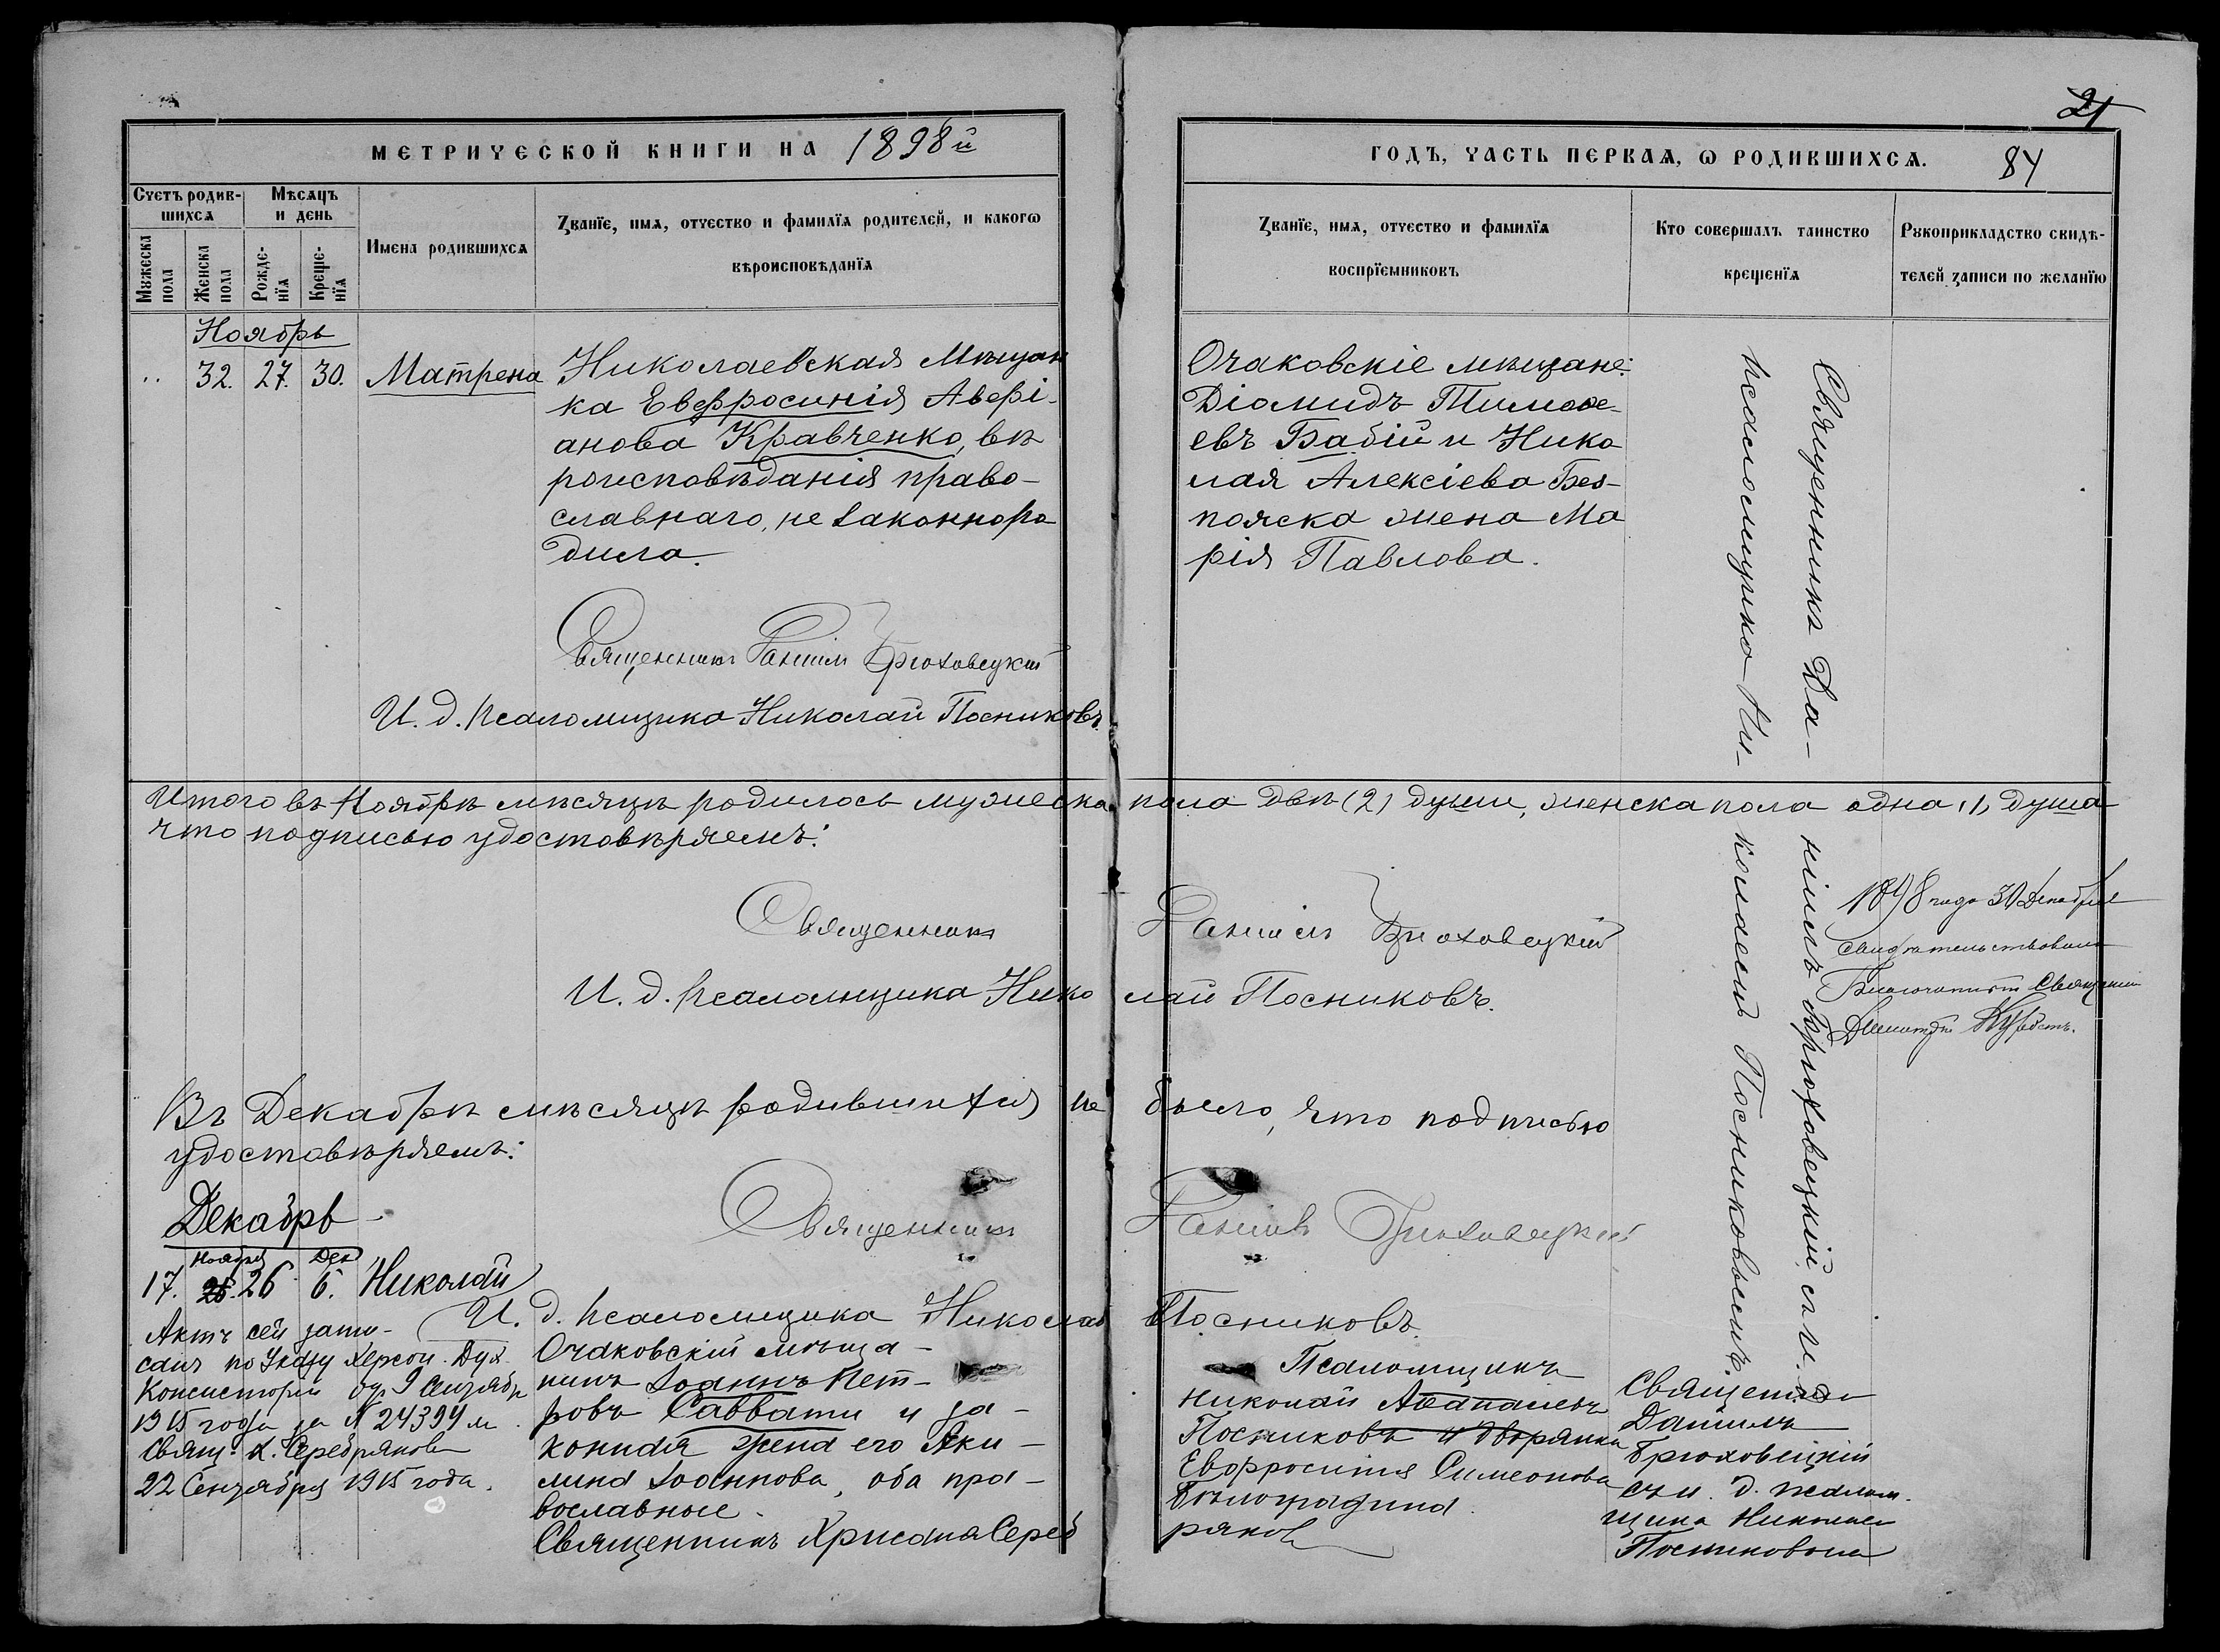 21
МЕТРИЧЕСКОЙ КНИГИ НА 1898й
ГОДЪ, ЧАСТЬ ПЕРВАѦ, Ѡ РОДИВШИХСѦ. 84
Счетъ родив-
шихсѧ
Мѣсѧцъ
и день
Мꙋжеска
пола
Женска
пола
Рожде-
нїѧ
Креще-
нїѧ
Имена родившихсѧ
Званїе, имѧ, отчество и фамилїѧ родителей, и какогѡ
вѣроисповѣданїѧ
Званїе, имѧ, отчество и фамилїѧ
воспрїемниковъ
Кто совершалъ таинство
крещенїѧ
Рꙋкоприкладство свидѣ-
телей записи по желанїю
Ноябрь
" 32. 27. 30. Матрена
Николаевская Мѣщан
ка Евфросинія Авері-
анова Кравченко, вѣ
роисповѣданія право-
славнаго, незаконноро
дила.
Священникъ Даніилъ Брюховецкій
И. д. псаломщика Николай Посниковъ.
Очаковскіе мѣщане:
Діомидъ Тимоѳе-
евъ Бабій и Нико
лая Алексіева Без-
пояска жена Ма
рія Павлова.
Священникъ Да-
ніилъ Брюховецкій съ и. д.
псаломщика Ни-
колаемъ Посниковымъ.
Итого въ Ноябрѣ мѣсяцѣ родилось мужеска пола двѣ (2) души, женска пола одна (1) душа
что подписью удостовѣряемъ:
Священникъ Даніилъ Брюховецкій
И. д. псаломщика Николай Посниковъ.
1898 года 30 Декабря
свидѣтельствовалъ
Благочинный Священникъ
Димитрій
Въ Декабрѣ мѣсяцѣ родившихся не было, что подписью
удостовѣряемъ:
Священникъ Даніилъ Брюховецкій
И. д. псаломщика Николай Посниковъ.
Декабрь
Ноября Дек
17. 26 6. Николай
Актъ сей запи-
санъ по Указу Херсон. Дух.
Консисторіи от 9 Сентября
1915 года за № 24394 м
Свящ. Х. Серебряковъ
22 Сентября 1915 года.
Очаковскій мѣща-
нинъ Іоаннъ Пет-
ровъ Саввати и за-
конная жена его Аки-
лина Іоаннова, оба пра-
вославные.
Священникъ Хрисанѳ Серебряковъ
Псаломщикъ
Николай Аѳанасіевъ
Посниковъ и дворянка
Евфросинія Симеонова
Священникъ
Даніилъ
Брюховецкій
съ и. д. псалом-
щика Николаемъ
Посниковымъ